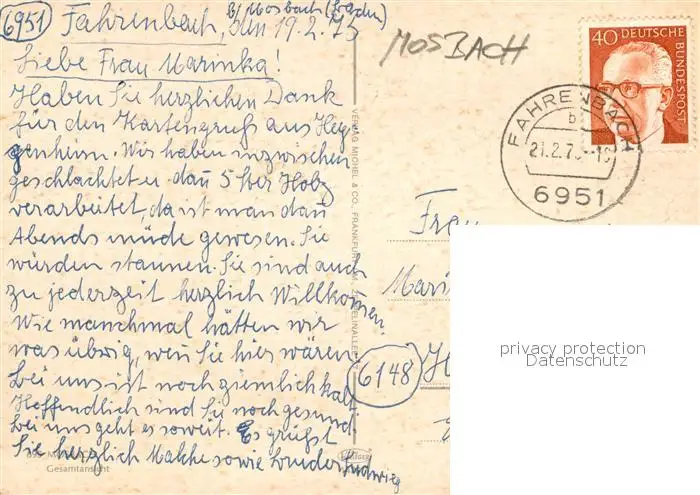 6951 Fahrenbach, b/Mosbach (Baden)
den 19.2.73
Liebe Frau Marinka!
Haben Sie herzlichen Dank
für den Kartengruß aus Hep
penheim. Wir haben inzwischen
geschlachtet u. dan 5 Ster Holz
verarbeitet, da ist man dan
Abends müde gewesen. Sie
würden staunen. Sie sind auch
zu jederzeit herzlich Willkomen.
Wie manchmal hätten wir
was übrig, wen Sie hier wären.
Bei uns ist noch ziemlich kalt
Hoffendlich sind Sie noch gesund.
Bei uns geht es soweit. Es grüßt
Sie herzlich sowie Ludwig
Gesamtansicht
VERLAG MICHEL & CO., FRANKFURT
MOSBACH
40 DEUTSCHE BUNDESPOST
FAHRENBACH
b
21.2.73
6951
Frau
Marin
6148 H
privacy protection
Datenschutz